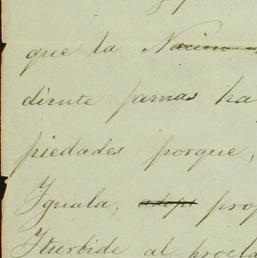 que la Nacion
diente jamas ha
piedades porque,
Iguala, adopt prop
Iturbide al procla